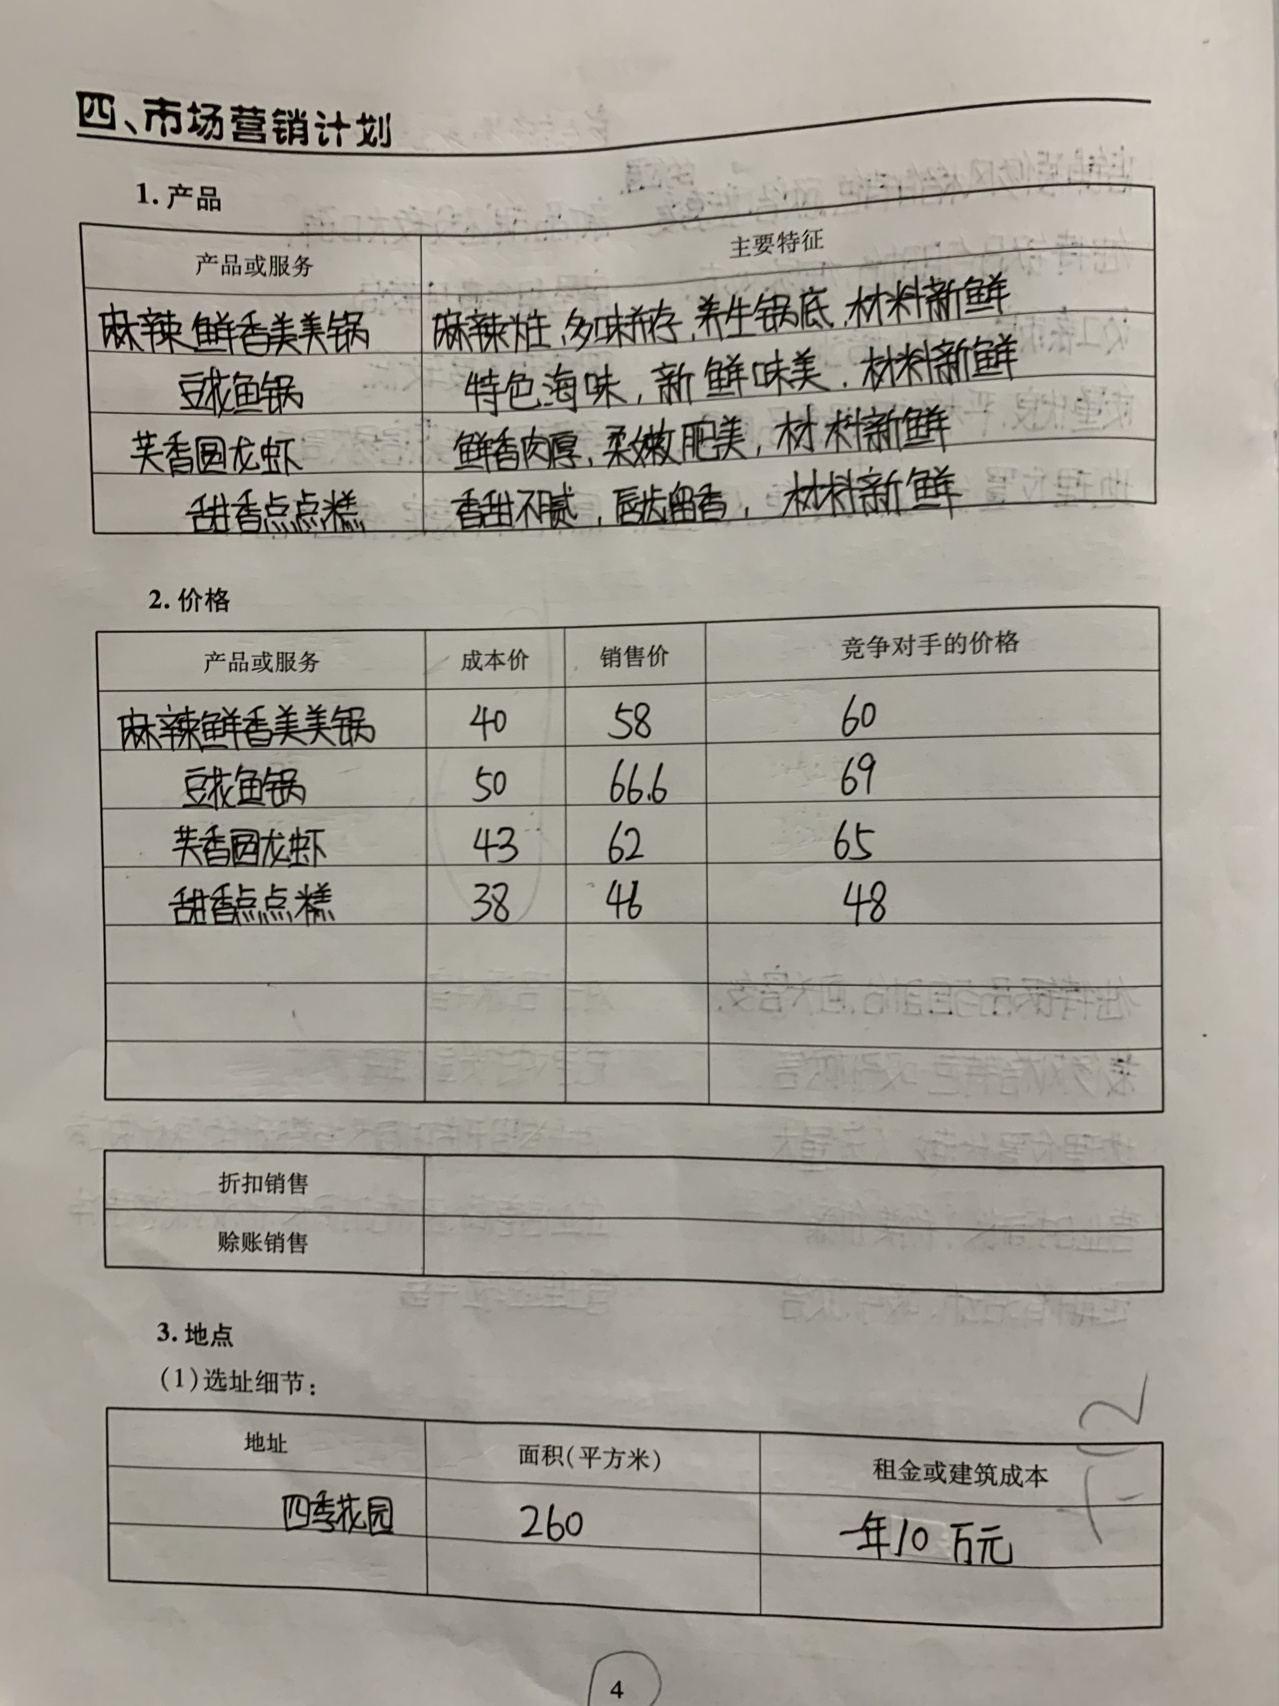 四、市场营销计划
1. 产品
产品或服务 主要特征
麻辣鲜香美美锅 麻辣灶,多味并存,养生锅底,材料新鲜
豆花鱼锅 特色海味,新鲜味美,材料新鲜
芙香园龙虾 鲜香肉厚,柔嫩肥美,材料新鲜
甜香点点糕 香甜不腻,唇齿留香,材料新鲜
2. 价格
产品或服务 成本价 销售价 竞争对手的价格
麻辣鲜香美美锅 40 58 60
豆花鱼锅 50 66.6 69
芙香园龙虾 43 62 65
甜香点点糕 38 46 48
折扣销售
赊账销售
3. 地点
(1)选址细节:
地址 面积(平方米) 租金或建筑成本
四季花园 260 一年10万元
4